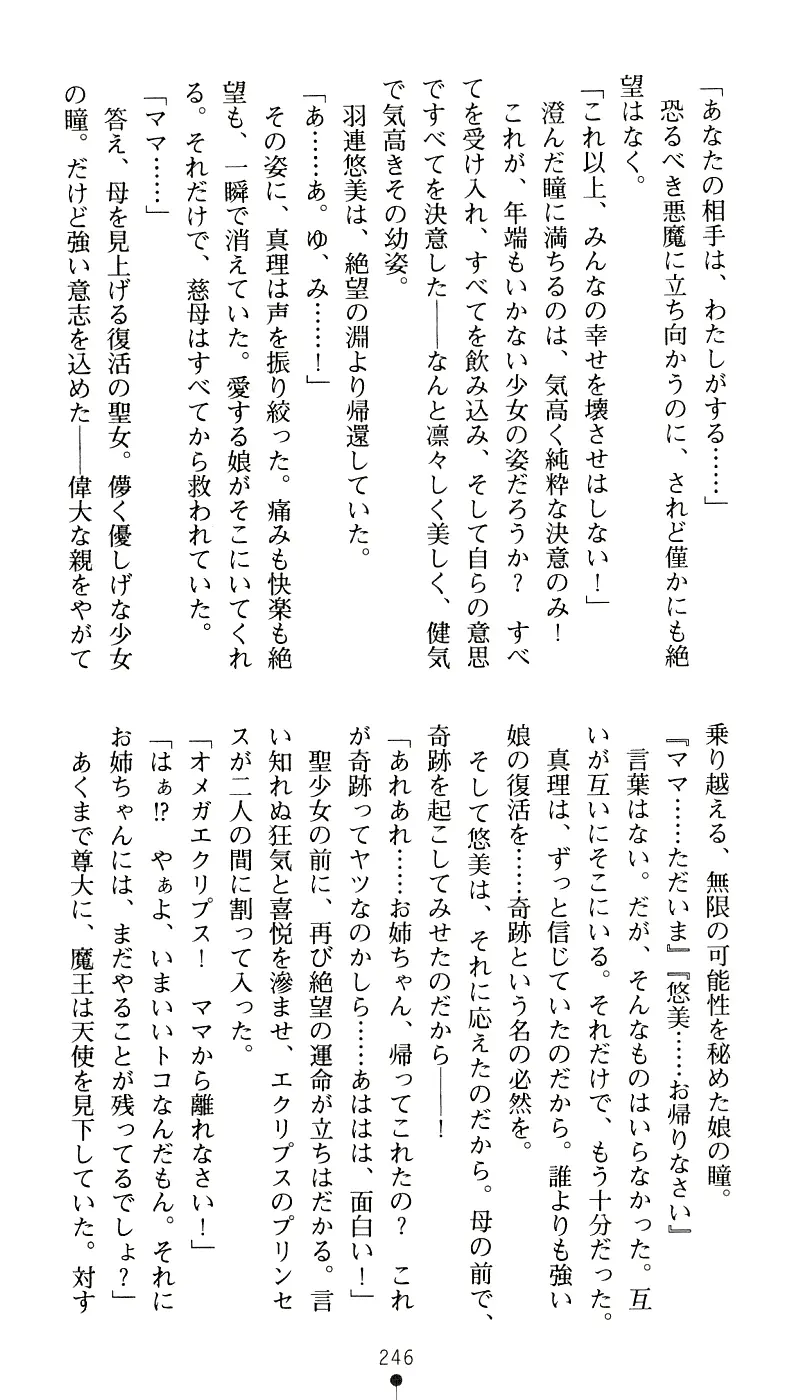 「あなたの相手は、わたしがする……」
　恐るべき悪魔に立ち向かうのに、されど僅かにも絶
望はなく。
「これ以上、みんなの幸せを壊させはしない！」
　澄んだ瞳に満ちるのは、気高く純粋な決意のみ！
　これが、年端もいかない少女の姿だろうか？　すべ
てを受け入れ、すべてを飲み込み、そして自らの意思
ですべてを決意した――なんと凛々しく美しく、健気
で気高きその幼姿。
　羽連悠美は、絶望の淵より帰還していた。
「あ……あ。ゆ、み……！」
　その姿に、真理は声を振り絞った。痛みも快楽も絶
望も、一瞬で消えていた。愛する娘がそこにいてくれ
る。それだけで、慈母はすべてから救われていた。
「ママ……」
　答え、母を見上げる復活の聖女。儚く優しげな少女
の瞳。だけど強い意志を込めた――偉大な親をやがて
乗り越える、無限の可能性を秘めた娘の瞳。
『ママ……ただいま』『悠美……お帰りなさい』
　言葉はない。だが、そんなものはいらなかった。互
いが互いにそこにいる。それだけで、もう十分だった。
　真理は、ずっと信じていたのだから。誰よりも強い
娘の復活を……奇跡という名の必然を。
　そして悠美は、それに応えたのだから。母の前で、
奇跡を起こしてみせたのだから――！
「あれあれ……お姉ちゃん、帰ってこれたの？　これ
が奇跡ってヤツなのかしら……あははは、面白い！」
　聖少女の前に、再び絶望の運命が立ちはだかる。言
い知れぬ狂気と喜悦を滲ませ、エクリプスのプリンセ
スが二人の間に割って入った。
「オメガエクリプス！　ママから離れなさい！」
「はぁ!?　やぁよ、いまいいトコなんだもん。それに
お姉ちゃんには、まだやることが残ってるでしょ？」
　あくまで尊大に、魔王は天使を見下していた。対す
246